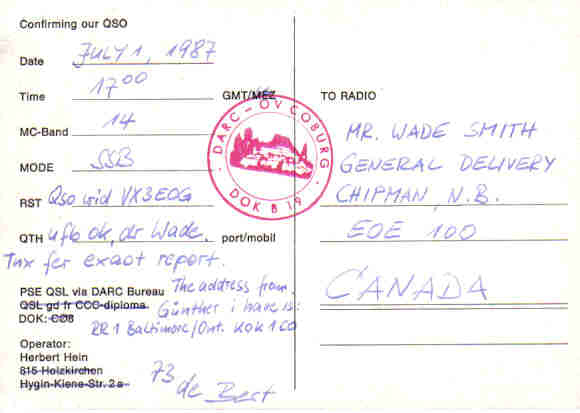 Confirming our QSO
Date JULY 1, 1987
Time 17⁰⁰ GMT/MEZ
MC-Band 14
MODE SSB
RST Qso wid VX3EOG
QTH ufb ok, dr Wade. port/mobil
Tnx fer exact report.
PSE QSL via DARC Bureau The address from
QSL gd fr CCC-diploma. Günther i have is:
DOK: CØ8 RR1 Baltimore/Ont. KOK 1CO
Operator:
Herbert Hein
815 Holzkirchen
Hygin-Kiene-Str. 2a
73
de Bert
DARC - OV COBURG
DOK B 19
TO RADIO
MR. WADE SMITH
GENERAL DELIVERY
CHIPMAN, N.B.
EOE 1OO
CANADA